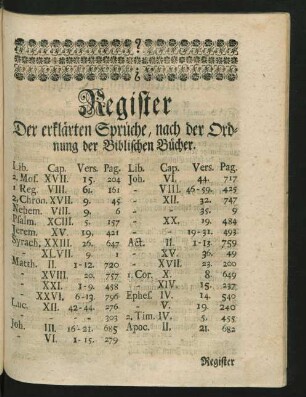 Register
Der erklärten Sprüche, nach der Ord-
nung der Biblischen Bücher.
Lib. Cap. Vers. Pag.
2. Mos. XVII. 15. 204
1 Reg. VIII. 61. 161
2. Chron. XVII. 9. 45
Nehem. VIII. 9. 6
Psalm. CIII. 5. 157
Jerem. XV. 19. 421
Syrach, XXXIII. 26. 647
XLVII. 9 1
Matth. II. 1-12. 720
— XVIII. 20. 757
— XXI. 1-9. 458
— XXVI. 6-13. 796
Luc. XII. 42-44. 276
— — — 303
Joh. III. 16-21. 685
— VI. 1-15. 279
Lib. Cap. Vers. Pag.
Joh. VI. 44. 717
— VIII. 46-59. 425
— XII. 32. 747
— — 35. 9
— XX. 19. 484
— — 19-31. 493
Act. II. 1-13. 759
— XV. 36. 49
— XVII. 23. 200
1. Cor. X. 8. 649
— XIV. 15. 237
Ephes. IV. 14. 540
— V. 19. 240
2. Tim. IV. 5. 455
Apoc. II. 21. 682
Register